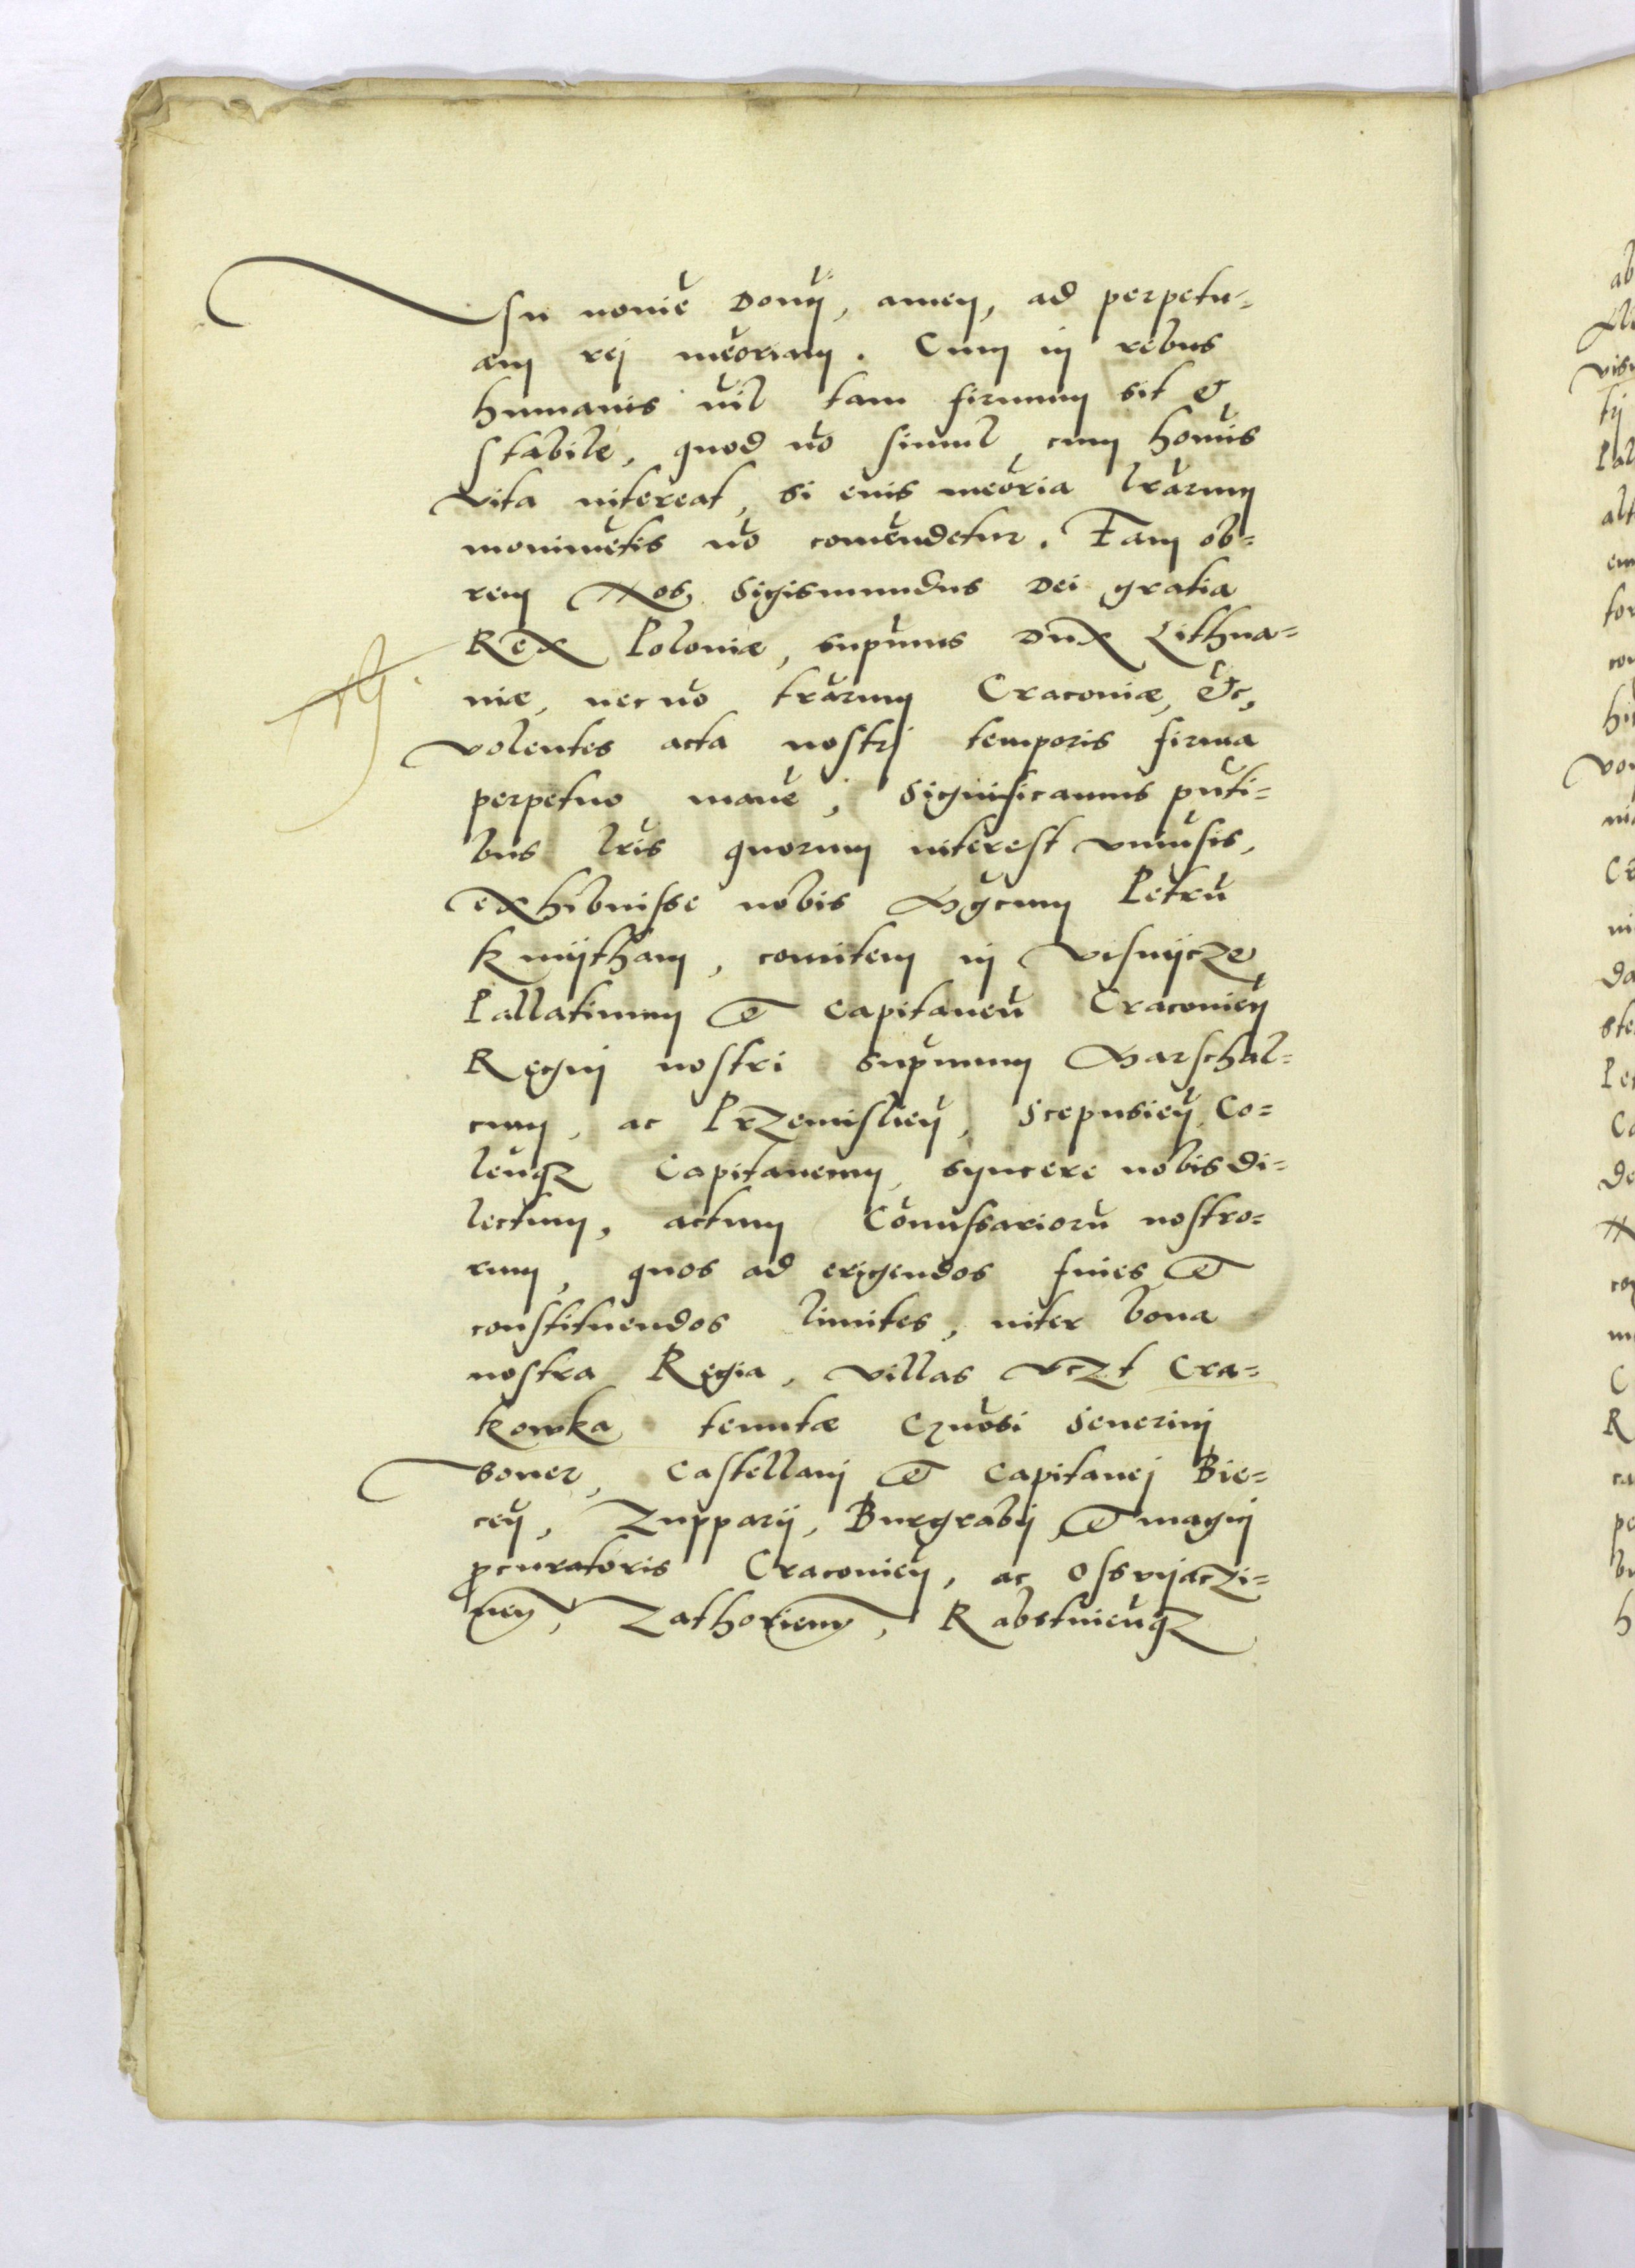 In noıe̅ Domj̅, amen, ad perpetu=
am rej meo̅riam. Cum in rebus
humanis nil tam firmum sit &
stabile, quod no̅ simul cum homi̅s
vita intereat, si eius meo̅ria lra̅rum
monime̅tis no̅ come̅ndetur. Eam ob=
rem Nos Sigismundus Dei gratia
Rex Poloniæ, supmus̅ Dux Lithua=
niæ, nec no̅ tra̅rum Cracoviæ, &c,
volentes acta nostrj temporis firma
perpetuo mane̅, Significamus pn̅ti=
bus lri̅s quorum interest vniu̅sis,
exhibuisse nobis Mgc̅um Petru̅
Kmijtham, comitem in Visnijcze
Pallatinum et Capitaneu̅ Cracovien̅
Regnj nostri supmum̅ Marschal=
cum, ac Przemislien̅, Scepusien̅, Co=
len̅qz Capitaneum, syncere nobis di=
lectum, actum Co̅missarioru̅ nostro=
rum, quos ad erigendos fines et
constituendos limites, inter bona
nostra Regia, villas vczt Cra=
kowka tenutæ Gn̅osi Seuerinj
Boner, Castellanj et Capitanej Bie=
cen̅, Zupparij, Burgrabij et magnj
procuratoris Cracovien̅, ac Ossvijaczi=
men̅, Zathorien̅, Rabstinen̅qz